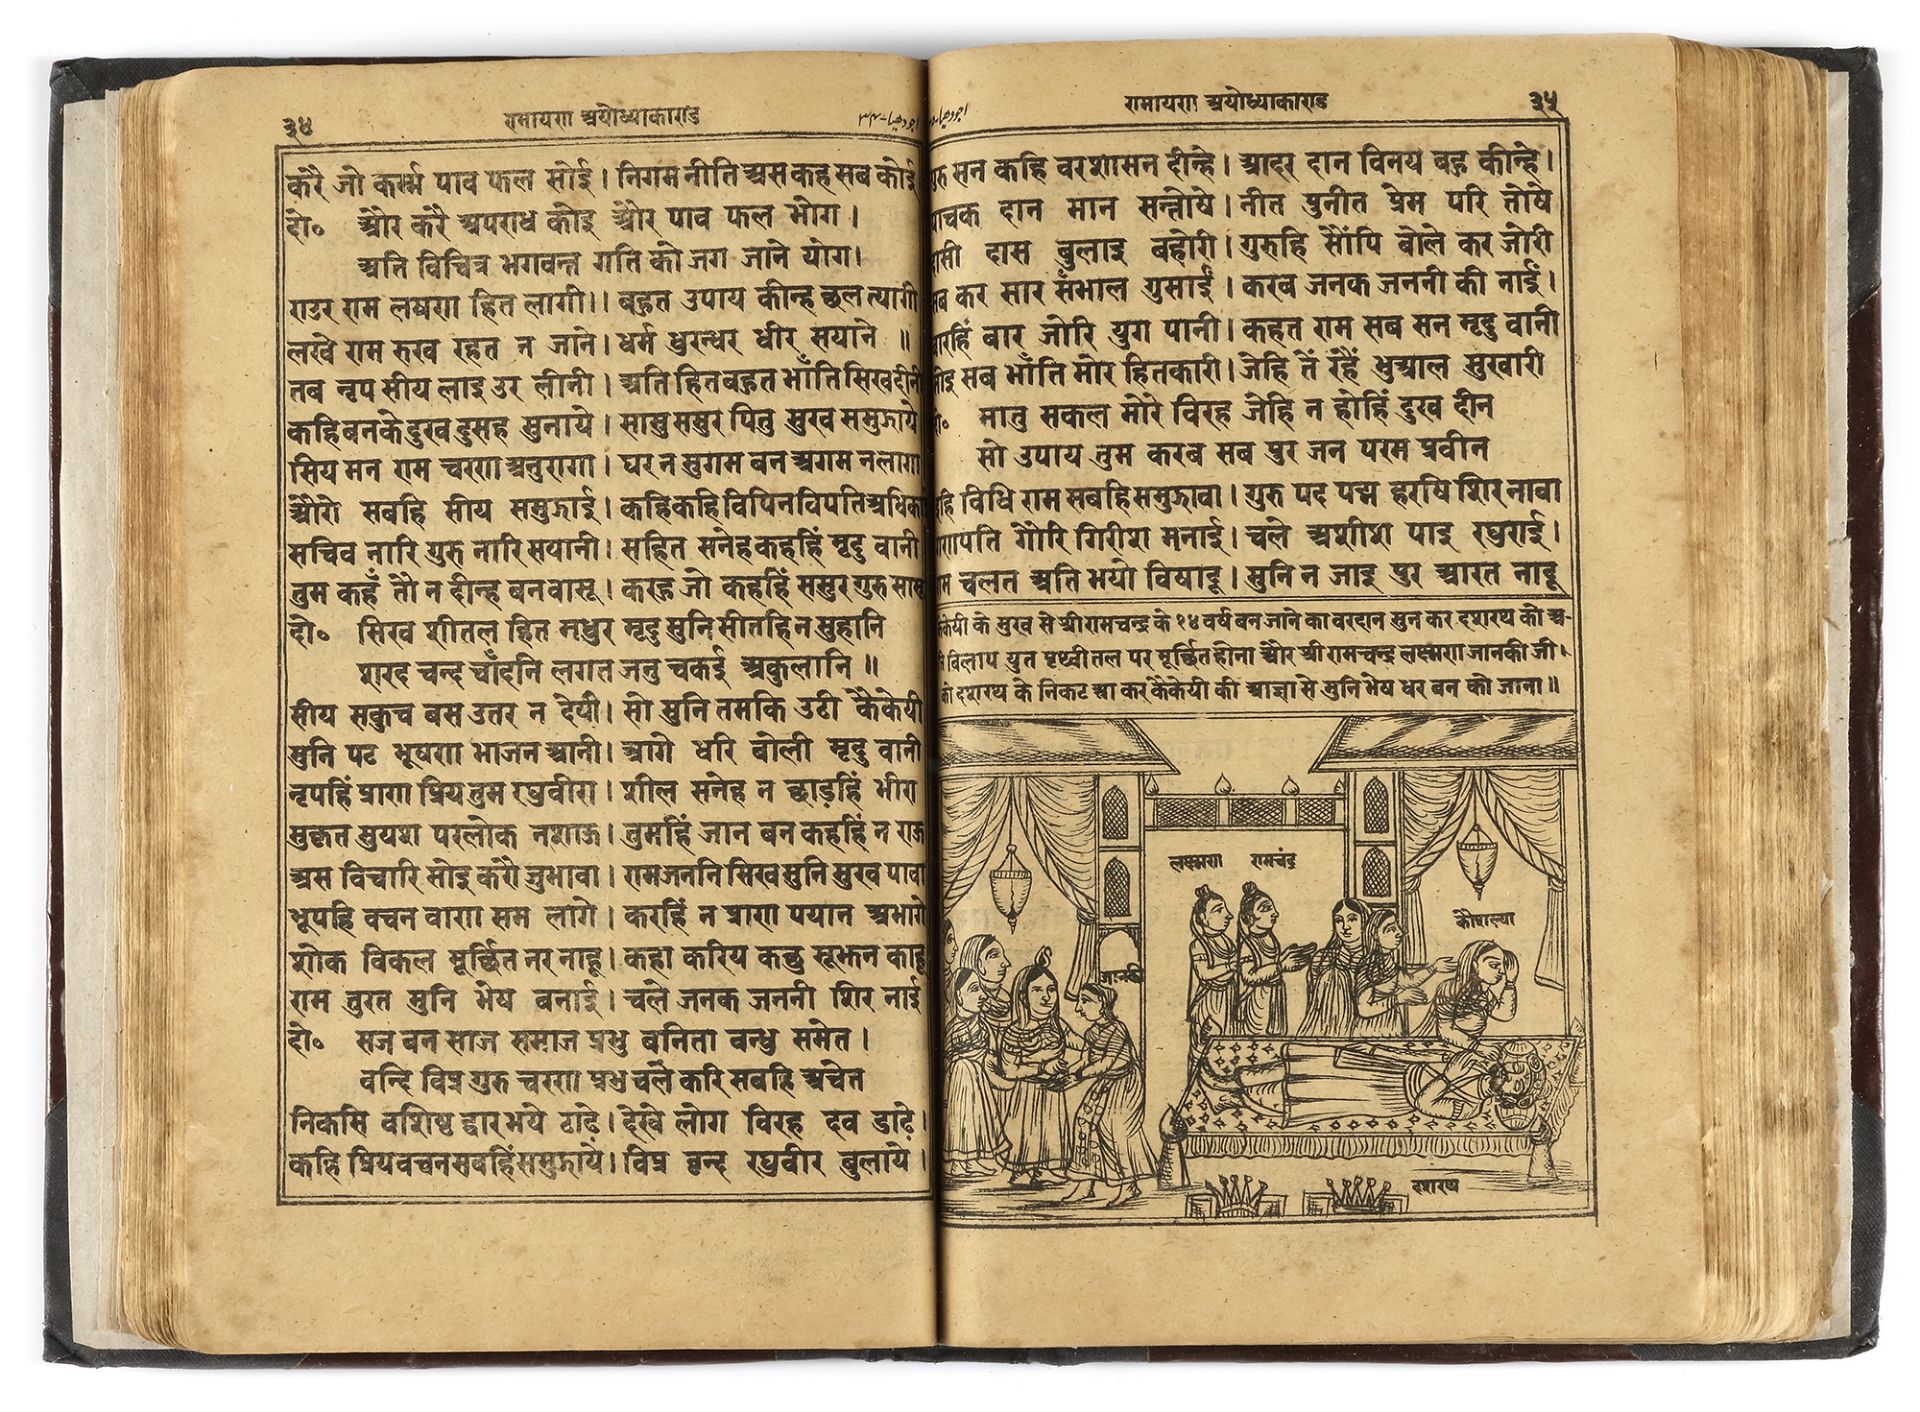 ३४
रामायरा अयोध्याकाराड
اجودھیا-۳۴
करै जो कर्म्म पाव फल सोई। निगम नीति अस कह सब कोई
दो॰ और करै अपराध कोइ और पाव फल भोग।
अति विचित्र भगवन्त गति को जग जाने योग।
राउर राम लषरा हित लागी।। बहुत उपाय कीन्ह छल त्यागी
लखे राम रुख रहत न जाने। धर्म धुरन्धर धीर सयाने ॥
तब नृप सीय लाइ उर लीनी। अति हित बहुत भाँति सिख दीनी
कहि बन के दुख दुसह सुनाये। सासु ससुर पितु सुख समुझाये
सिय मन राम चररा अनुरागा। घर न सुगम बन अगम न लागा
औरो सबहि सीय समुझाई। कहि कहि विपिन विपति अधिकाई
सचिव नारि गुरु नारि सयानी। सहित सनेह कहहिं मृदु वानी
तुम कहँ तौ न दीन्ह बनवासू। करहु जो कहहिं ससुर गुरु सासू
दो॰ सिख शीतल हित मधुर मृदु सुनि सीतहि न सुहानि
शरद चन्द चाँदनि लगत जनु चकई अकुलानि॥
सीय सकुच बस उतर न देयी। सो सुनि तमकि उठी कैकेयी
मुनि पट भूषरा भाजन आनी। आगे धरि बोली मृदु वानी
नृपहिं प्रारा प्रिय तुम रघुवीरा। शील सनेह न छाड़हिं भीरा
सुकृत सुयश परलोक नशाऊ। तुमहिं जान बन कहहिं न राऊ
अस विचारि सोइ करौ जुभावा। राम जननि सिख सुनि सुख पावा
भूपहि वचन वारा सम लागे। करहिं न प्रारा पयान अभागे
शोक विकल मूर्च्छित नर नाहू। कहा करिय कछु सूझ न काहू
राम तुरत मुनि भेष बनाई। चले जनक जननी शिर नाई
दो॰ सज बन साज समाज प्रभु बनिता बन्धु समेत।
वन्दि विप्र गुरु चररा प्रभु चले करि सबहि अचेत
निकसि वशिष्ठ द्वार भये ठाढ़े। देखे लोग विरह दव डाढ़े।
कहि प्रिय वचन सबहिं समुझाये। विप्र वृन्द रघुवीर बुलाये।
اجودھیا
रामायरा अयोध्याकाराड
३५
गुरु सन कहि वरशासन दीन्हे। आदर दान विनय बहु कीन्हे।
याचक दान मान सन्तोषे। नीत पुनीत प्रेम परि तोषे
दासी दास बुलाइ बहोरी। गुरुहि सौंपि बोले कर जोरी
सब कर सार सँभाल गुसाईं। करब जनक जननी की नाईं।
बारहिं बार जोरि युग पानी। कहत राम सब सन मृदु वानी
सोइ सब भाँति मोर हितकारी। जेहि तें रहैं भुआल सुखारी
दो॰ मातु सकल मोरे विरह जेहि न होहिं दुख दीन
सो उपाय तुम करब सब पुर जन परम प्रवीन
इहि विधि राम सबहि समुझावा। गुरु पद पद्म हरषि शिर नावा
गरापति गौरि गिरीश मनाई। चले अशीश पाइ रघुराई।
राम चलत अति भयो विषादू। सुनि न जाइ पुर आरत नादू
कैकेयी के मुख से श्रीरामचन्द्र के १४ वर्ष बन जाने का वरदान सुन कर दशरथ को अ-
ति विलाप युत पृथ्वी तल पर मूर्च्छित होना और श्री रामचन्द्र लक्ष्मरा जानकी जी।
को दशरथ के निकट आ कर कैकेयी की आज्ञा से मुनि भेष धर बन को जाना॥
लक्ष्मरा रामचंद्र
कौशल्या
जानकी
दशरथ